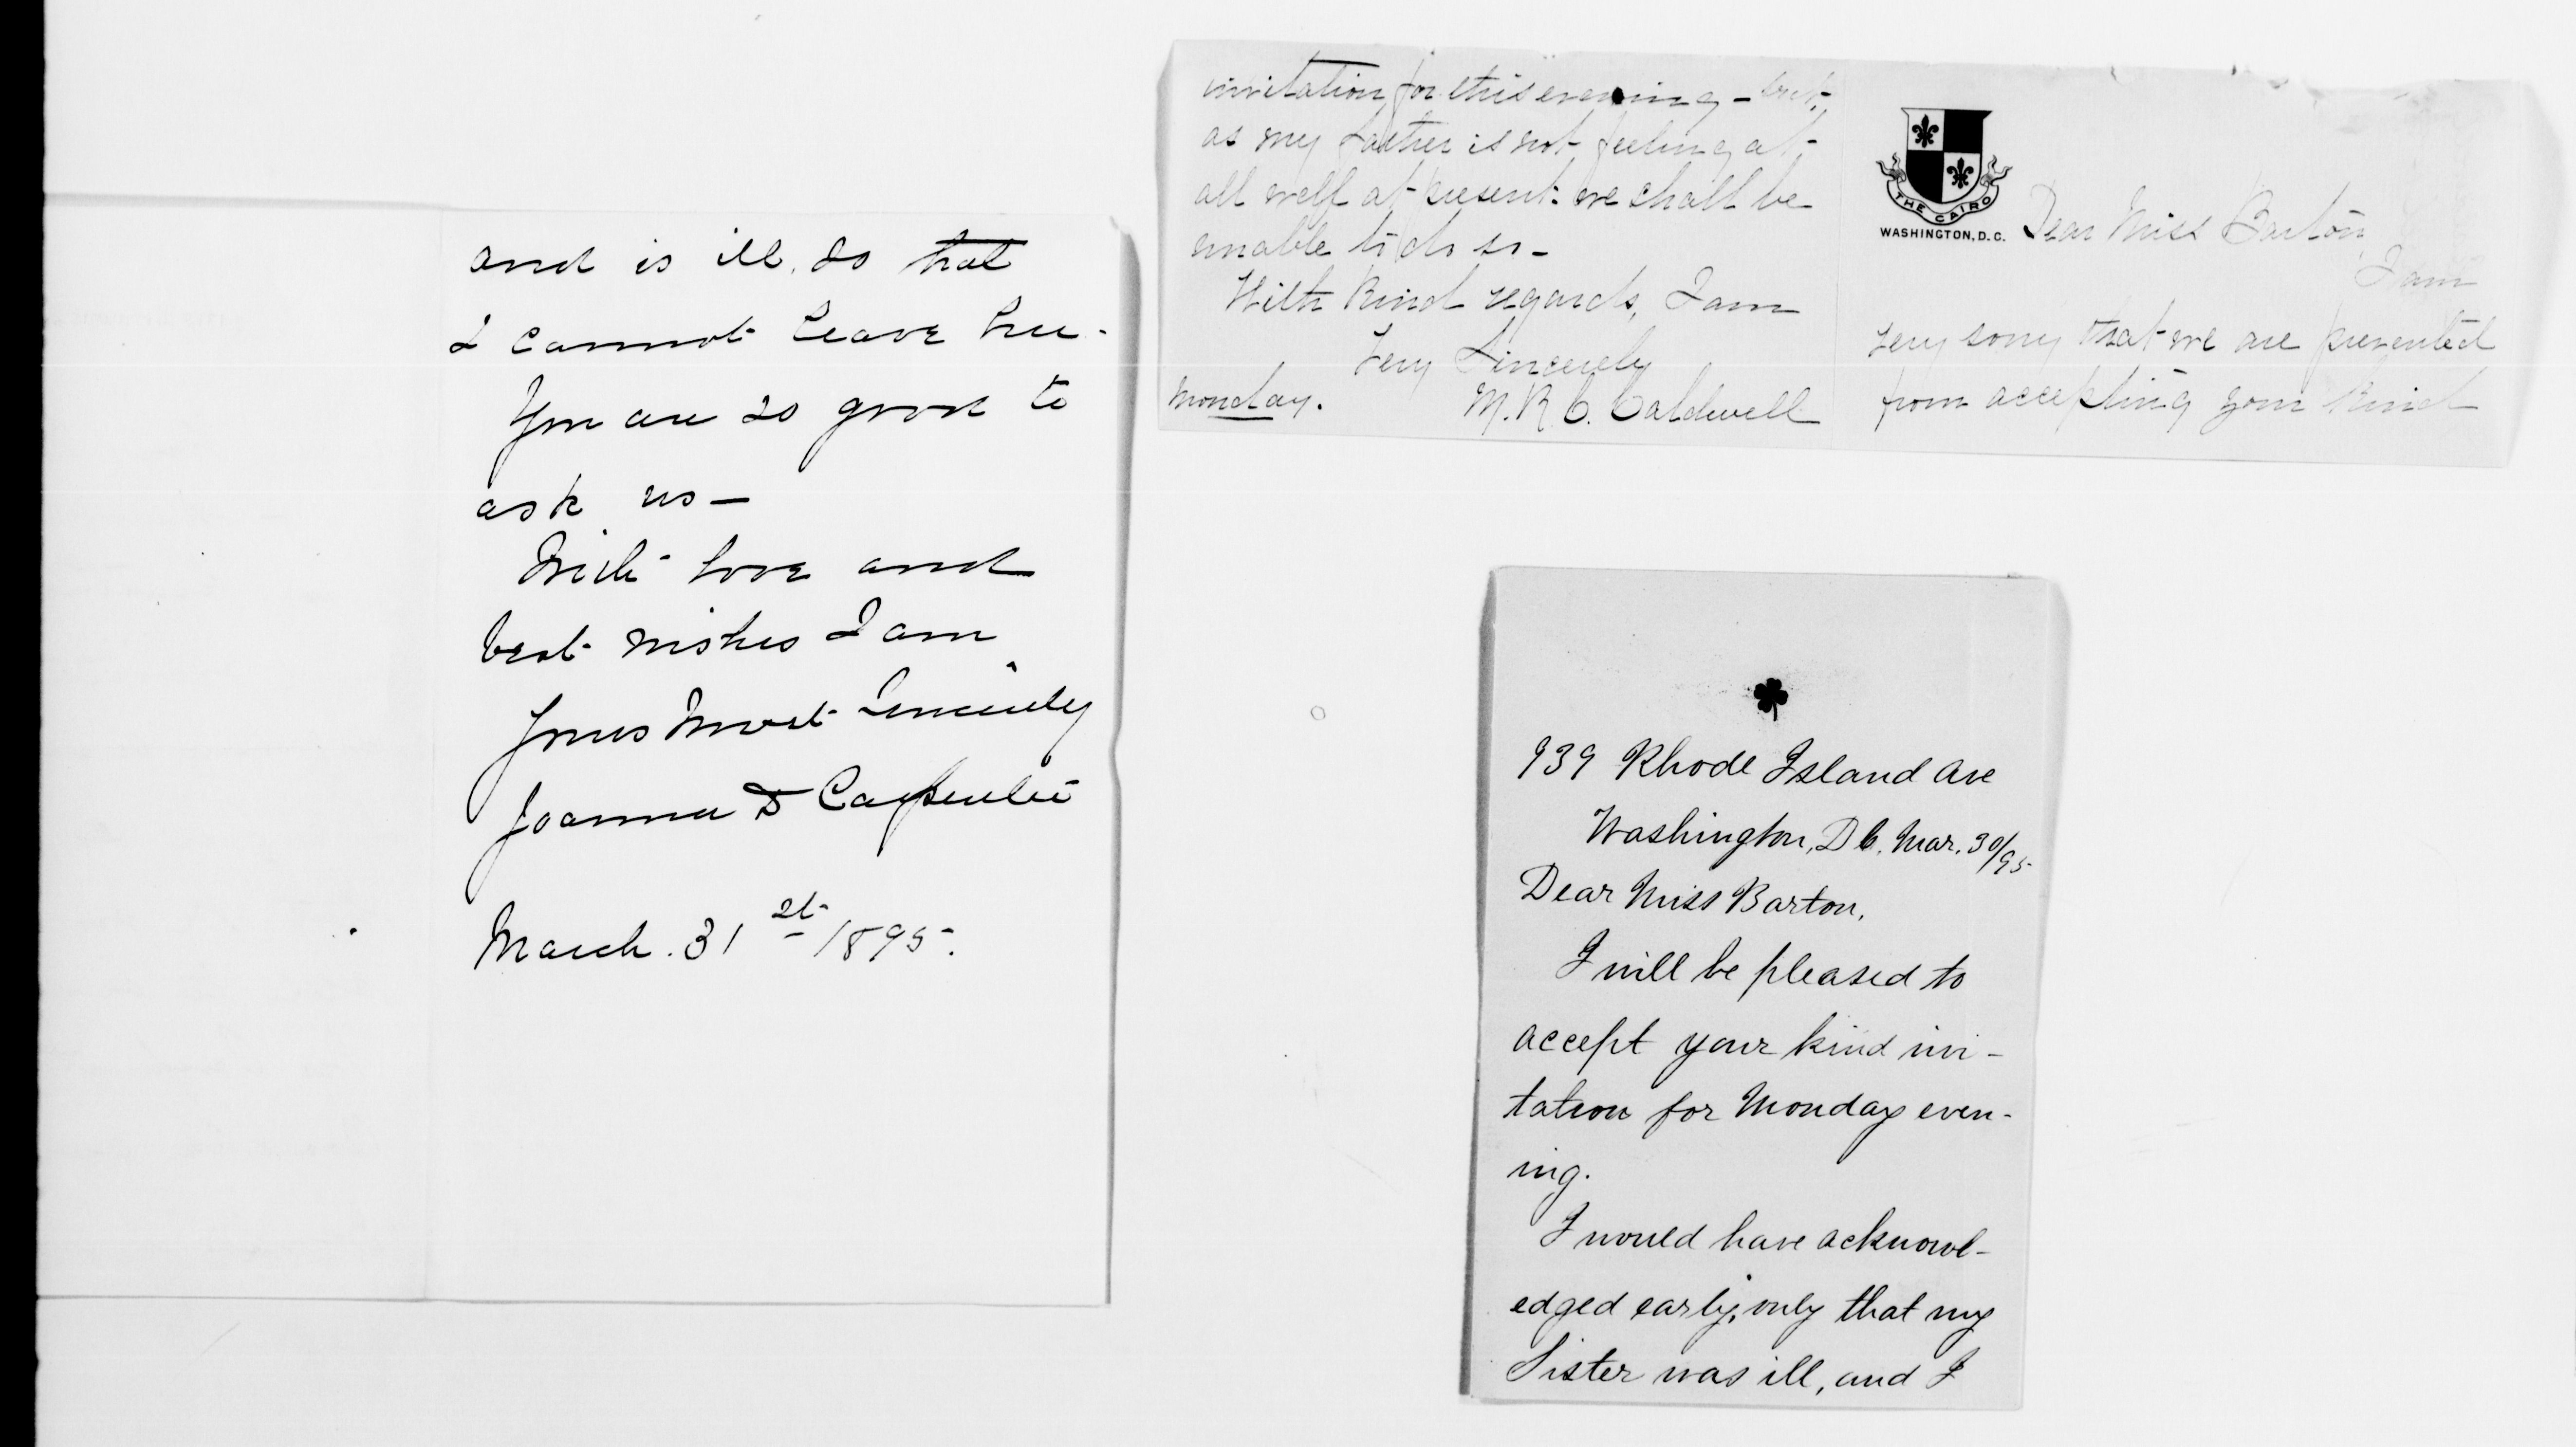 and is ill. so that
I cannot leave her.
You are so good to
ask us—
With love and
best wishes I am
Yours most sincerely
Joanna D Carpenter
March. 31st 1895.
THE CAIRO
WASHINGTON, D.C.
Dear Miss Barton,
I am
very sorry that we are prevented
from accepting your kind
invitation for this evening - but,
as my father is not feeling at
all well at present. we shall be
unable to do so -
With kind regards, I am
Very Sincerely
M. R. C. Caldwell
Monday.
939 Rhode Island Ave
Washington, D C. Mar. 30/95
Dear Miss Barton,
I will be pleased to
accept your kind invi-
tation for Monday even-
ing.
I would have acknowl-
edged early, only that my
Sister was ill, and I